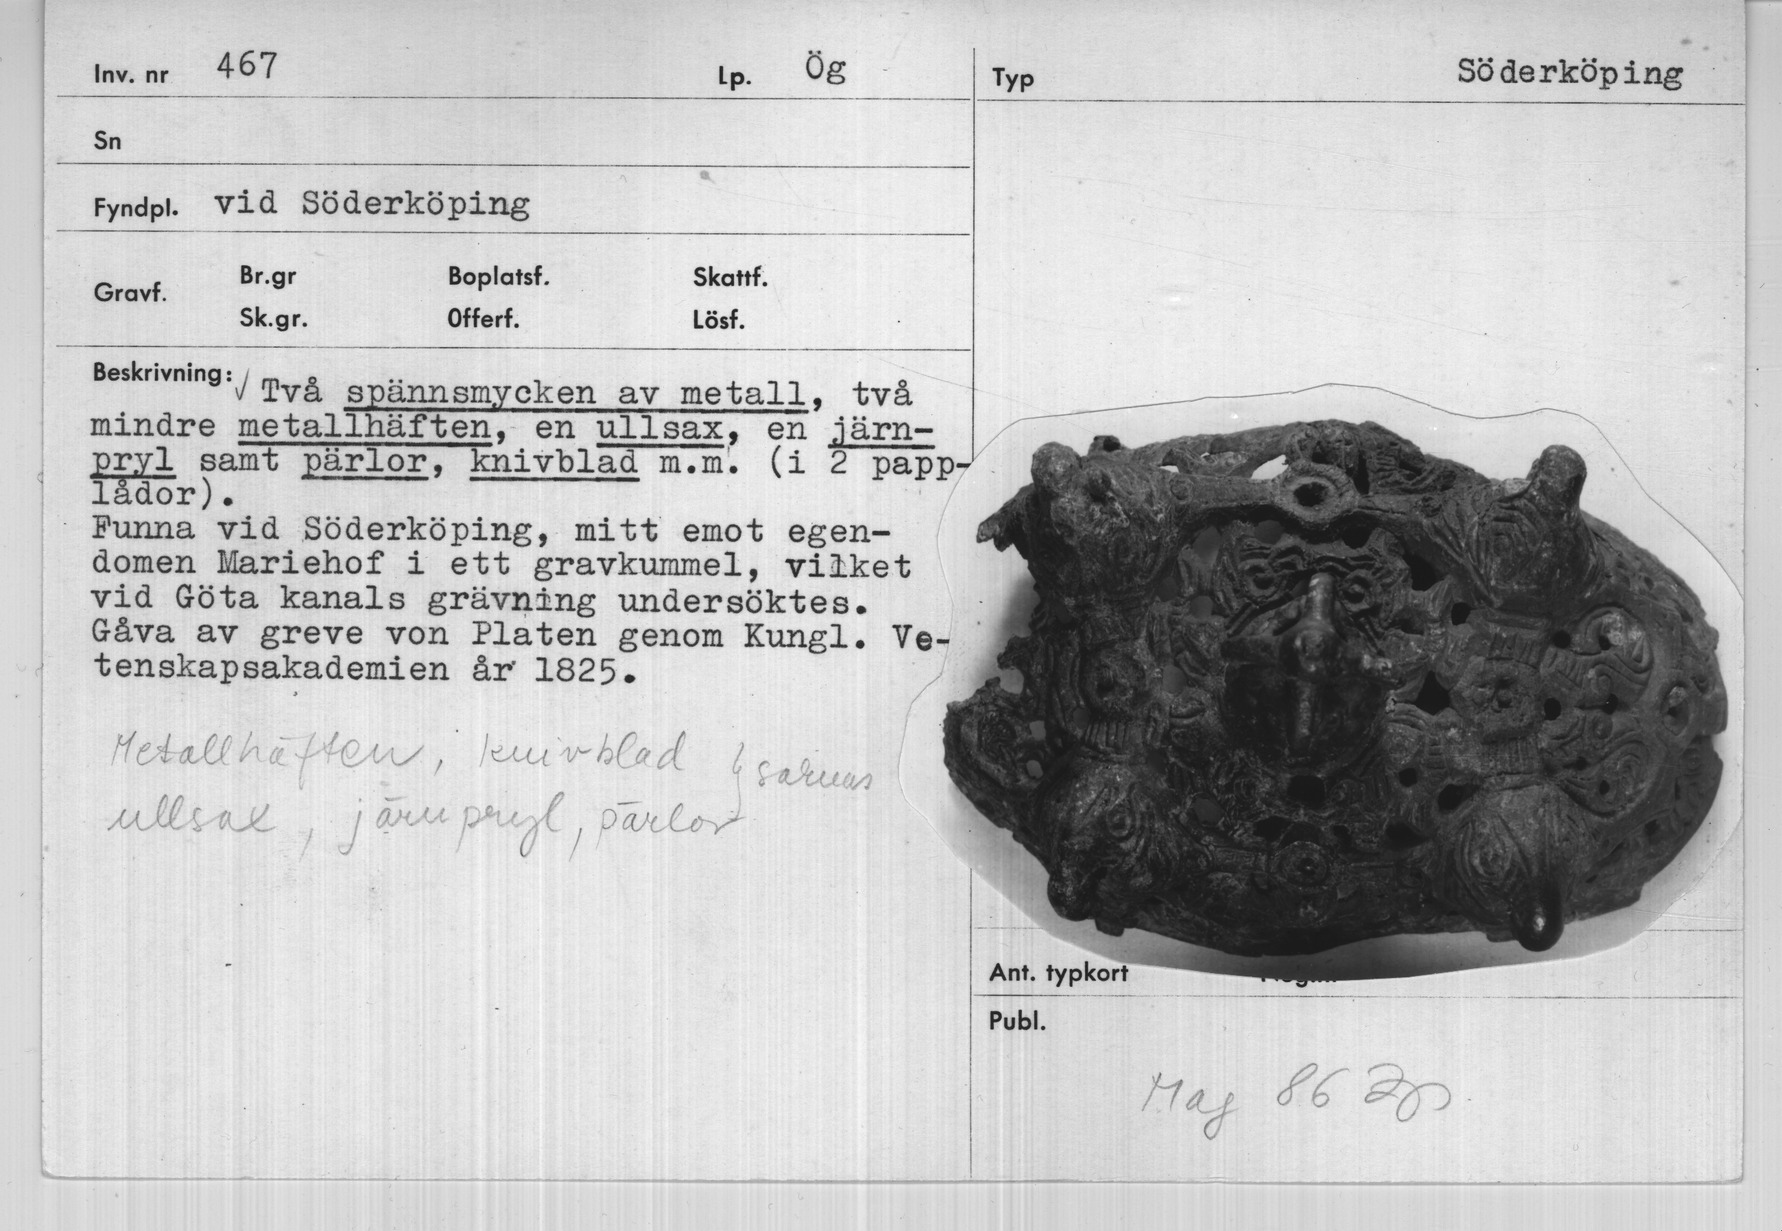 Inv. nr 467 Lp. Ög
Sn
Fyndpl. vid Söderköping
Gravf. Br.gr Boplatsf. Skattf.
Sk.gr. Offerf. Lösf.
Beskrivning: √ Två spännsmycken av metall, två
mindre metallhäften, en ullsax, en järn-
pryl samt pärlor, knivblad m.m. (i 2 papp-
lådor).
Funna vid Söderköping, mitt emot egen-
domen Mariehof i ett gravkummel, vilket
vid Göta kanals grävning undersöktes.
Gåva av greve von Platen genom Kungl. Ve-
tenskapsakademien år 1825.
Metallhäften, knivblad } saknas
ullsax, järnpryl, pärlor
Typ Söderköping
Ant. typkort
Publ.
Mag 86